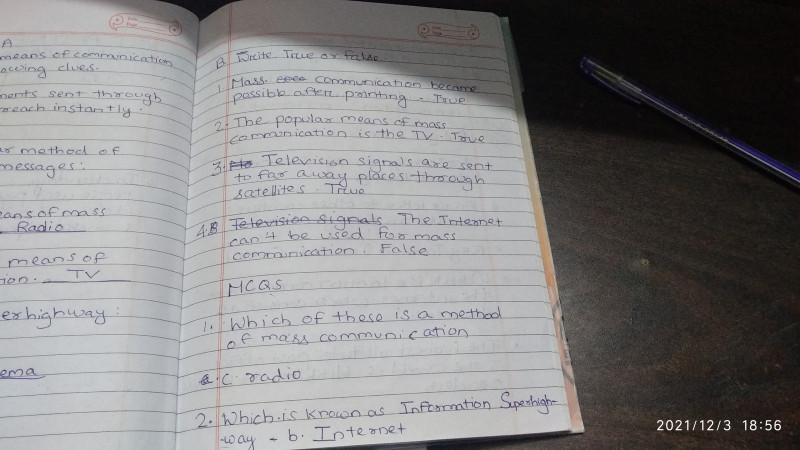 A
means of communication
owing clues.
ments sent through
reach instantly.
ar method of
messages:
eans of mass
Radio
means of
ion. TV
erhighway:
ema
B Write True or false
1. Mass communication became
possible after printing. True
2. The popular means of mass
communication is the TV. True
3. Television signals are sent
to far away places through
satellites. True
4. Television signals The Internet
can't be used for mass
communication. False
MCQS
1. Which of these is a method
of mass communication
c. radio
2. Which is known as Information Superhigh-
way - b. Internet
2021/12/3 18:56